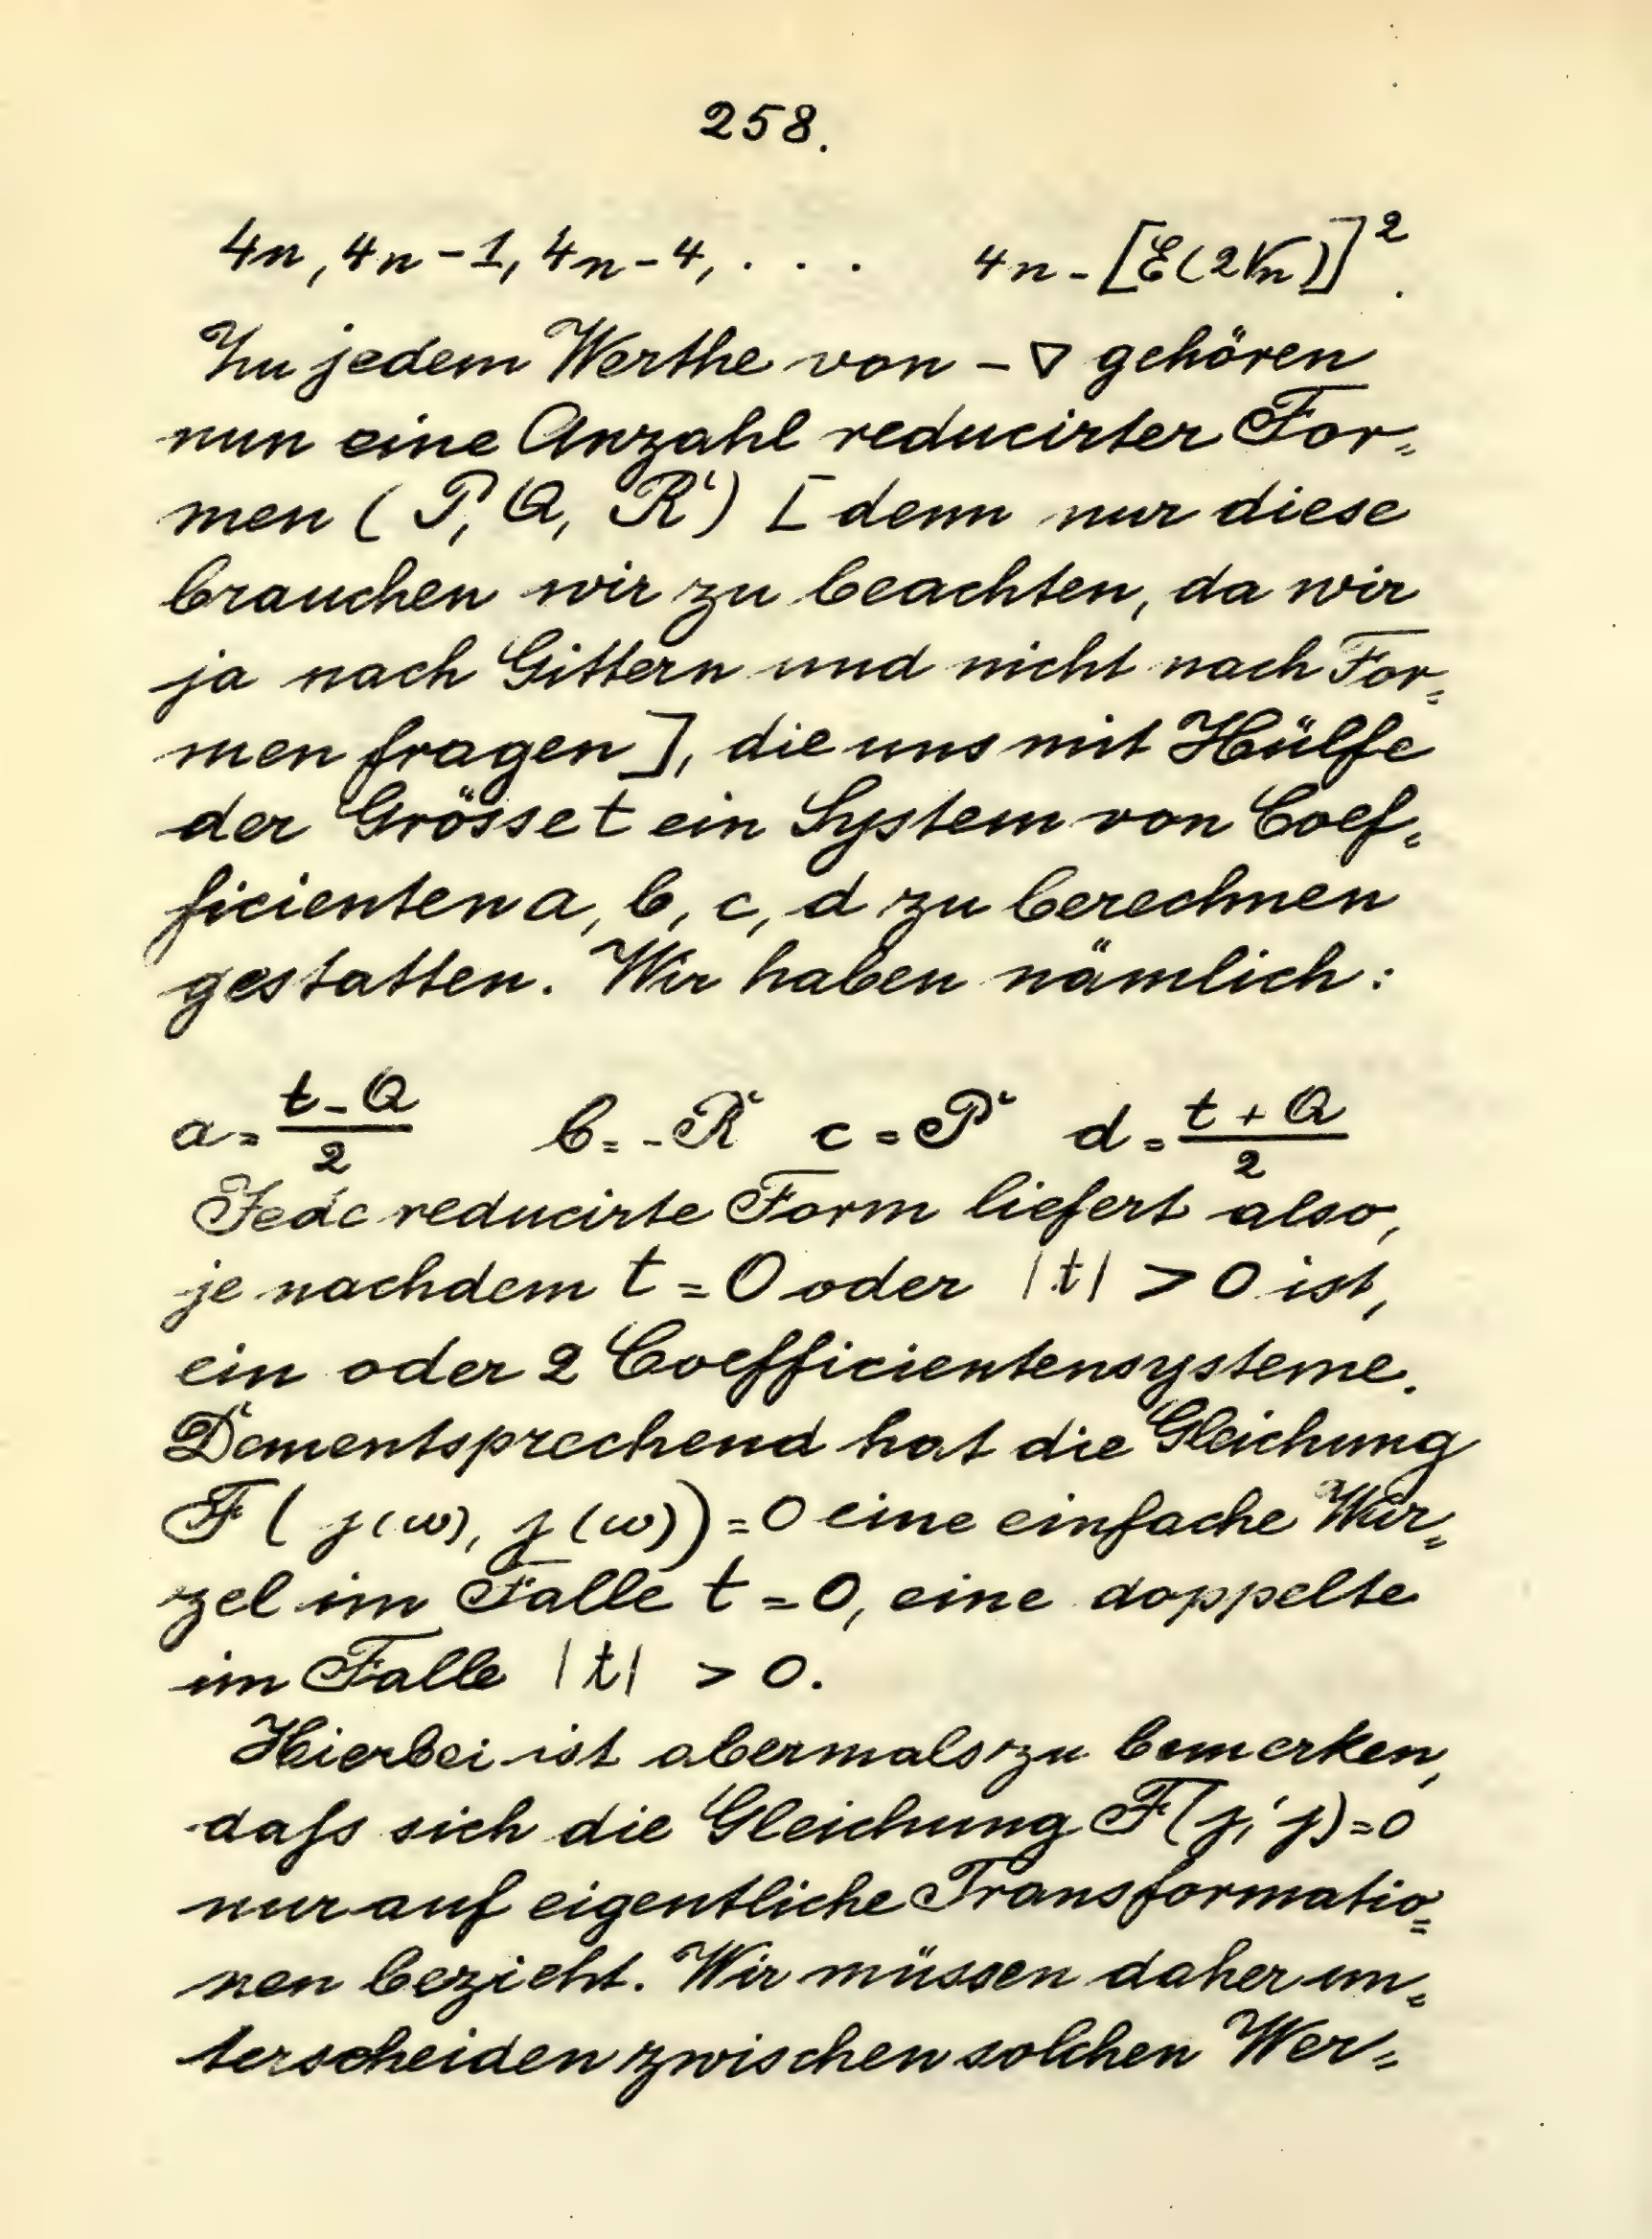 258.
4n, 4n-1, 4n-4, . . . 4n-[E(2√n)]².
Zu jedem Werthe von -∇ gehören
nun eine Anzahl reducirter For=
men (P, Q, R) [denn nur diese
brauchen wir zu beachten, da wir
ja nach Gittern und nicht nach For=
men fragen], die uns mit Hülfe
der Grösse t ein System von Coef=
ficienten a, b, c, d zu berechnen
gestatten. Wir haben nämlich:
a = (t-Q)/2 b = -R c = P d = (t+Q)/2
Jede reducirte Form liefert also,
je nachdem t = 0 oder |t| > 0 ist,
ein oder 2 Coefficientensysteme.
Dementsprechend hat die Gleichung
F(j(ω), j(ω)) = 0 eine einfache Wur=
zel im Falle t = 0, eine doppelte
im Falle |t| > 0.
Hierbei ist abermals zu bemerken,
dafs sich die Gleichung F(j,'j)=0
nur auf eigentliche Transformatio=
nen bezieht. Wir müssen daher un=
terscheiden zwischen solchen Wer=